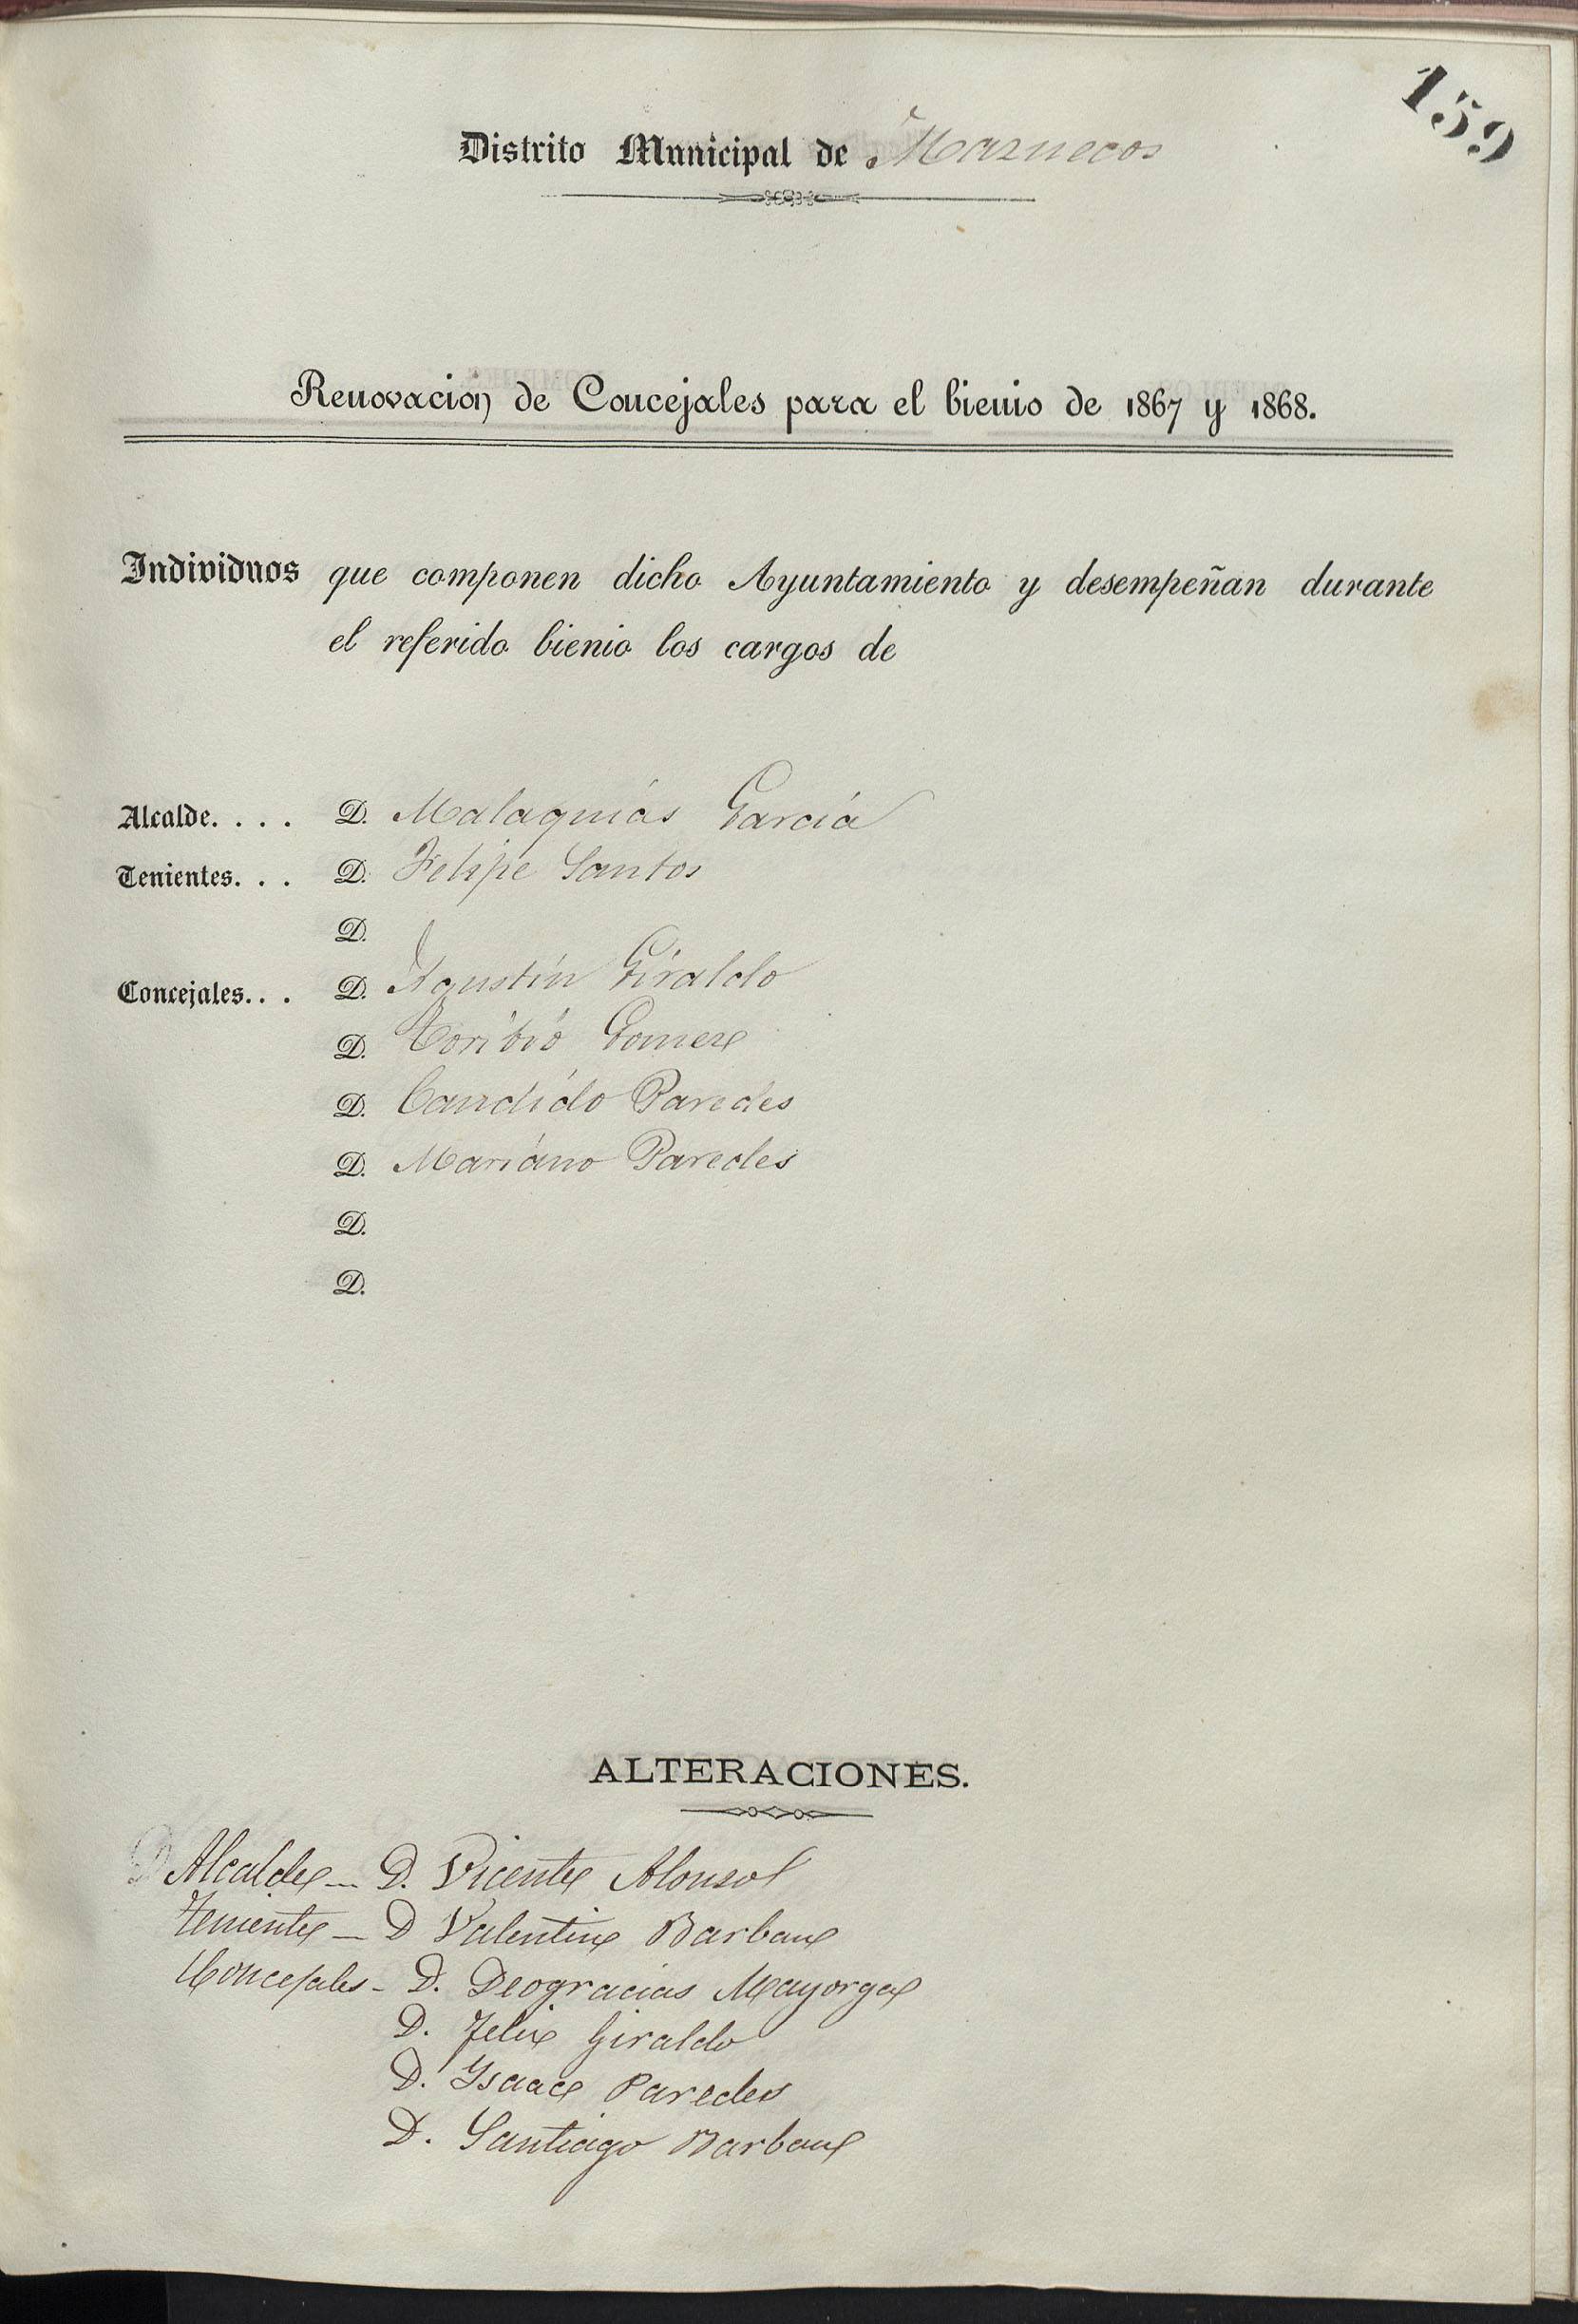 159
Distrito Municipal de Mazuecos
Renovacion de Concejales para el bienio de 1867 y 1868.
Individuos que componen dicho Ayuntamiento y desempeñan durante
el referido bienio los cargos de
Alcalde. . . . D. Malaquias García
Tenientes. . . D. Felipe Santos
D.
Concejales. . . D. Agustín Giraldo
D. Toribio Gomez
D. Candido Paredes
D. Mariano Paredes
D.
D.
ALTERACIONES.
Alcalde - D. Vicente Alonso
Teniente - D Valentin Barban
Concejales - D. Deogracias Mayorga
D. Felix Giraldo
D. Ysaac Paredes
D. Santiago Barban